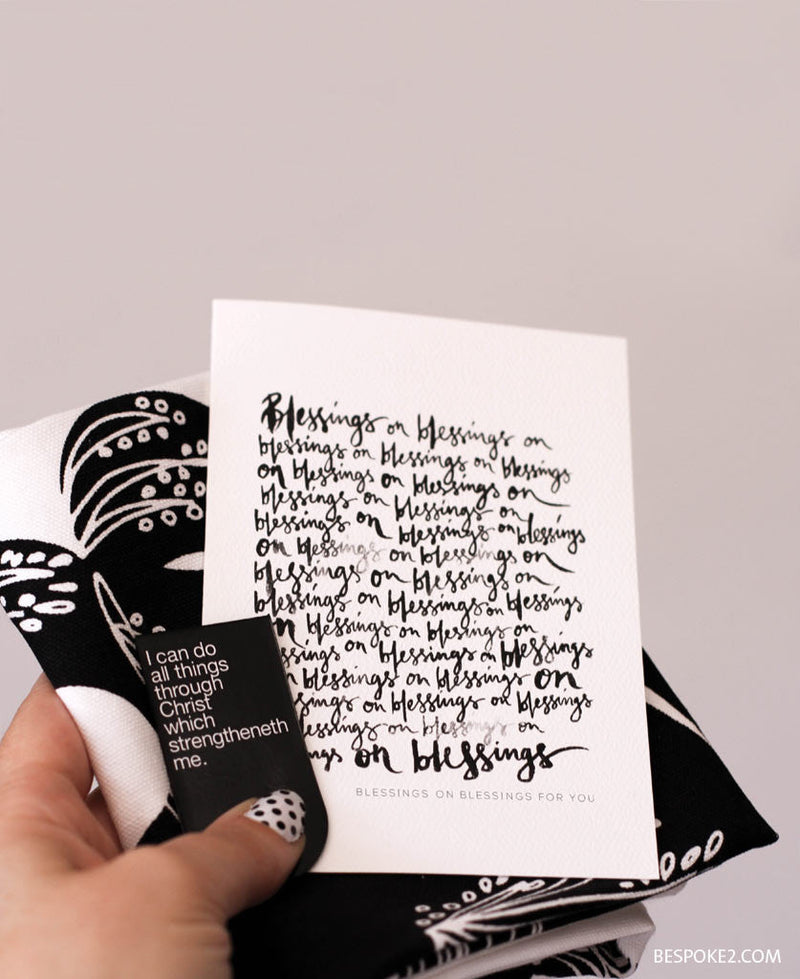 Blessings on blessings on
blessings on blessings on blessings
on blessings on blessings on
blessings on blessings on
blessings on blessings on blessings
on blessings on blessings on
blessings on blessings on
blessings on blessings on blessings
on blessings on blessings on
blessings on blessings on blessings
blessings on blessings on
blessings on blessings on blessings
blessings on blessings on
on blessings
BLESSINGS ON BLESSINGS FOR YOU
I can do
all things
through
Christ
which
strengtheneth
me.
BESPOKE2.COM